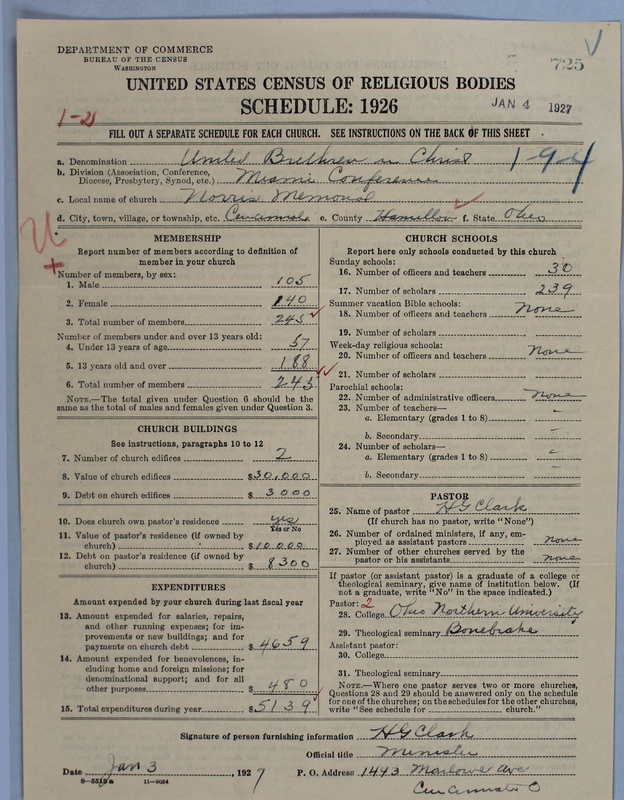 DEPARTMENT OF COMMERCE
BUREAU OF THE CENSUS
WASHINGTON
725
UNITED STATES CENSUS OF RELIGIOUS BODIES
SCHEDULE: 1926
JAN 4 1927
1-21
FILL OUT A SEPARATE SCHEDULE FOR EACH CHURCH. SEE INSTRUCTIONS ON THE BACK OF THIS SHEET
a. Denomination United Brethren in Christ
b. Division (Association, Conference, Diocese, Presbytery, Synod, etc.) Miami Conference
c. Local name of church Norris Memorial
d. City, town, village, or township, etc. Cincinnati e. County Hamilton f. State Ohio
MEMBERSHIP
Report number of members according to definition of
member in your church
Number of members, by sex:
1. Male 105
2. Female 140
3. Total number of members 245
Number of members under and over 13 years old:
4. Under 13 years of age 57
5. 13 years old and over 188
6. Total number of members 245
NOTE.—The total given under Question 6 should be
same as the total of males and females given under Question 3.
CHURCH BUILDINGS
See instructions, paragraphs 10 to 12
7. Number of church edifices 2
8. Value of church edifices $30,000
9. Debt on church edifices $ 3000
10. Does church own pastor's residence yes
Yes or No
11. Value of pastor's residence (if owned by
church) $10,000
12. Debt on pastor's residence (if owned by
church) $ 8300
EXPENDITURES
Amount expended by your church during last fiscal year
13. Amount expended for salaries, repairs,
and other running expenses; for im-
provements or new buildings; and for
payments on church debt $ 4659
14. Amount expended for benevolences, in-
cluding home and foreign missions; for
denominational support; and for all
other purposes $ 480
15. Total expenditures during year $5139
CHURCH SCHOOLS
Report here only schools conducted by this church
Sunday schools:
16. Number of officers and teachers 30
17. Number of scholars 239
Summer vacation Bible schools:
18. Number of officers and teachers None
19. Number of scholars
Week-day religious schools:
20. Number of officers and teachers None
21. Number of scholars
Parochial schools:
22. Number of administrative officers None
23. Number of teachers—
a. Elementary (grades 1 to 8) -
b. Secondary -
24. Number of scholars—
a. Elementary (grades 1 to 8) -
b. Secondary -
PASTOR
25. Name of pastor H G Clark
(If church has no pastor, write "None")
26. Number of ordained ministers, if any, em-
ployed as assistant pastors none
27. Number of other churches served by the
pastor or his assistants none
If pastor (or assistant pastor) is a graduate of a college or
theological seminary, give name of institution below. (If
not a graduate, write "No" in the space indicated.)
Pastor: 2
28. College Ohio Northern University
29. Theological seminary Bonebrake
Assistant pastor:
30. College
31. Theological seminary
NOTE.—Where one pastor serves two or more churches,
Questions 28 and 29 should be answered only on the schedule
for one of the churches; on the schedules for the other churches,
write "See schedule for ............ church."
Signature of person furnishing information H G Clark
Official title Minister
Date Jan 3, 1927 P. O. Address 1493 Marlowe Ave
8-5518a 11-9034
Cincinnati O